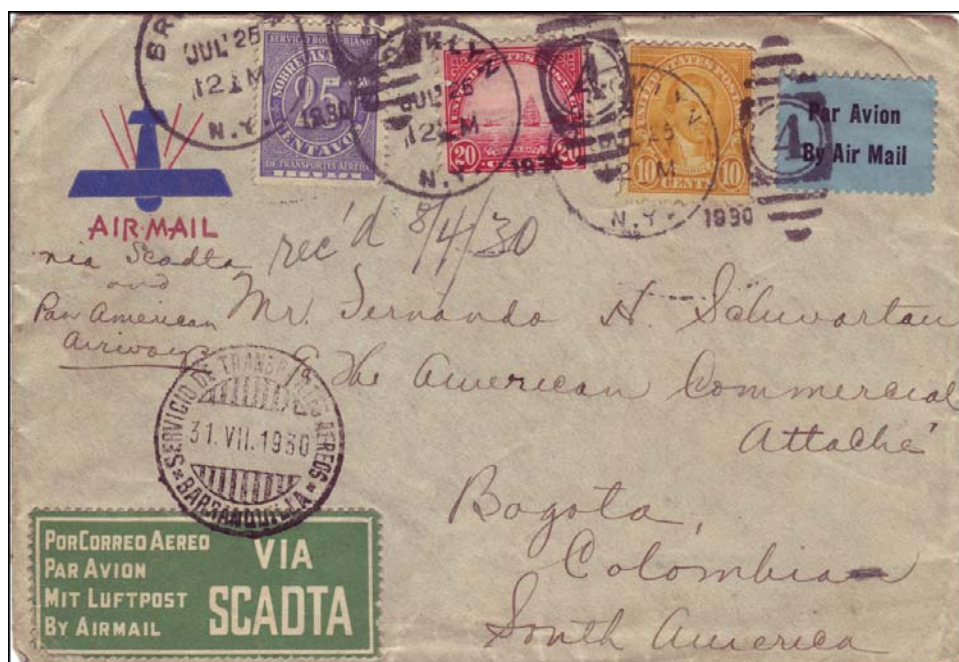 JUL 25
12 M
N.Y.
1930
SERVICIO BOLIVARIANO
SOBRETASA
25
CENTAVOS
DE TRANSPORTES AEREOS
JUL 25
12 M
N.Y.
1930
UNITED STATES POSTAGE
20 CENTS 20
4
UNITED STATES POSTAGE
10 CENTS 10
N.Y.
1930
4
Par Avion
By Air Mail
AIR-MAIL
via Scadta
and
Pan American
Airways
rec'd 8/4/30
Mr. Fernando H. Schwartau
% The American Commercial
Attaché
Bogota,
Colombia
South America
SERVICIO DE TRANSPORTES AEREOS
31. VII. 1930
BARRANQUILLA
POR CORREO AEREO
PAR AVION
MIT LUFTPOST
BY AIRMAIL
VIA
SCADTA